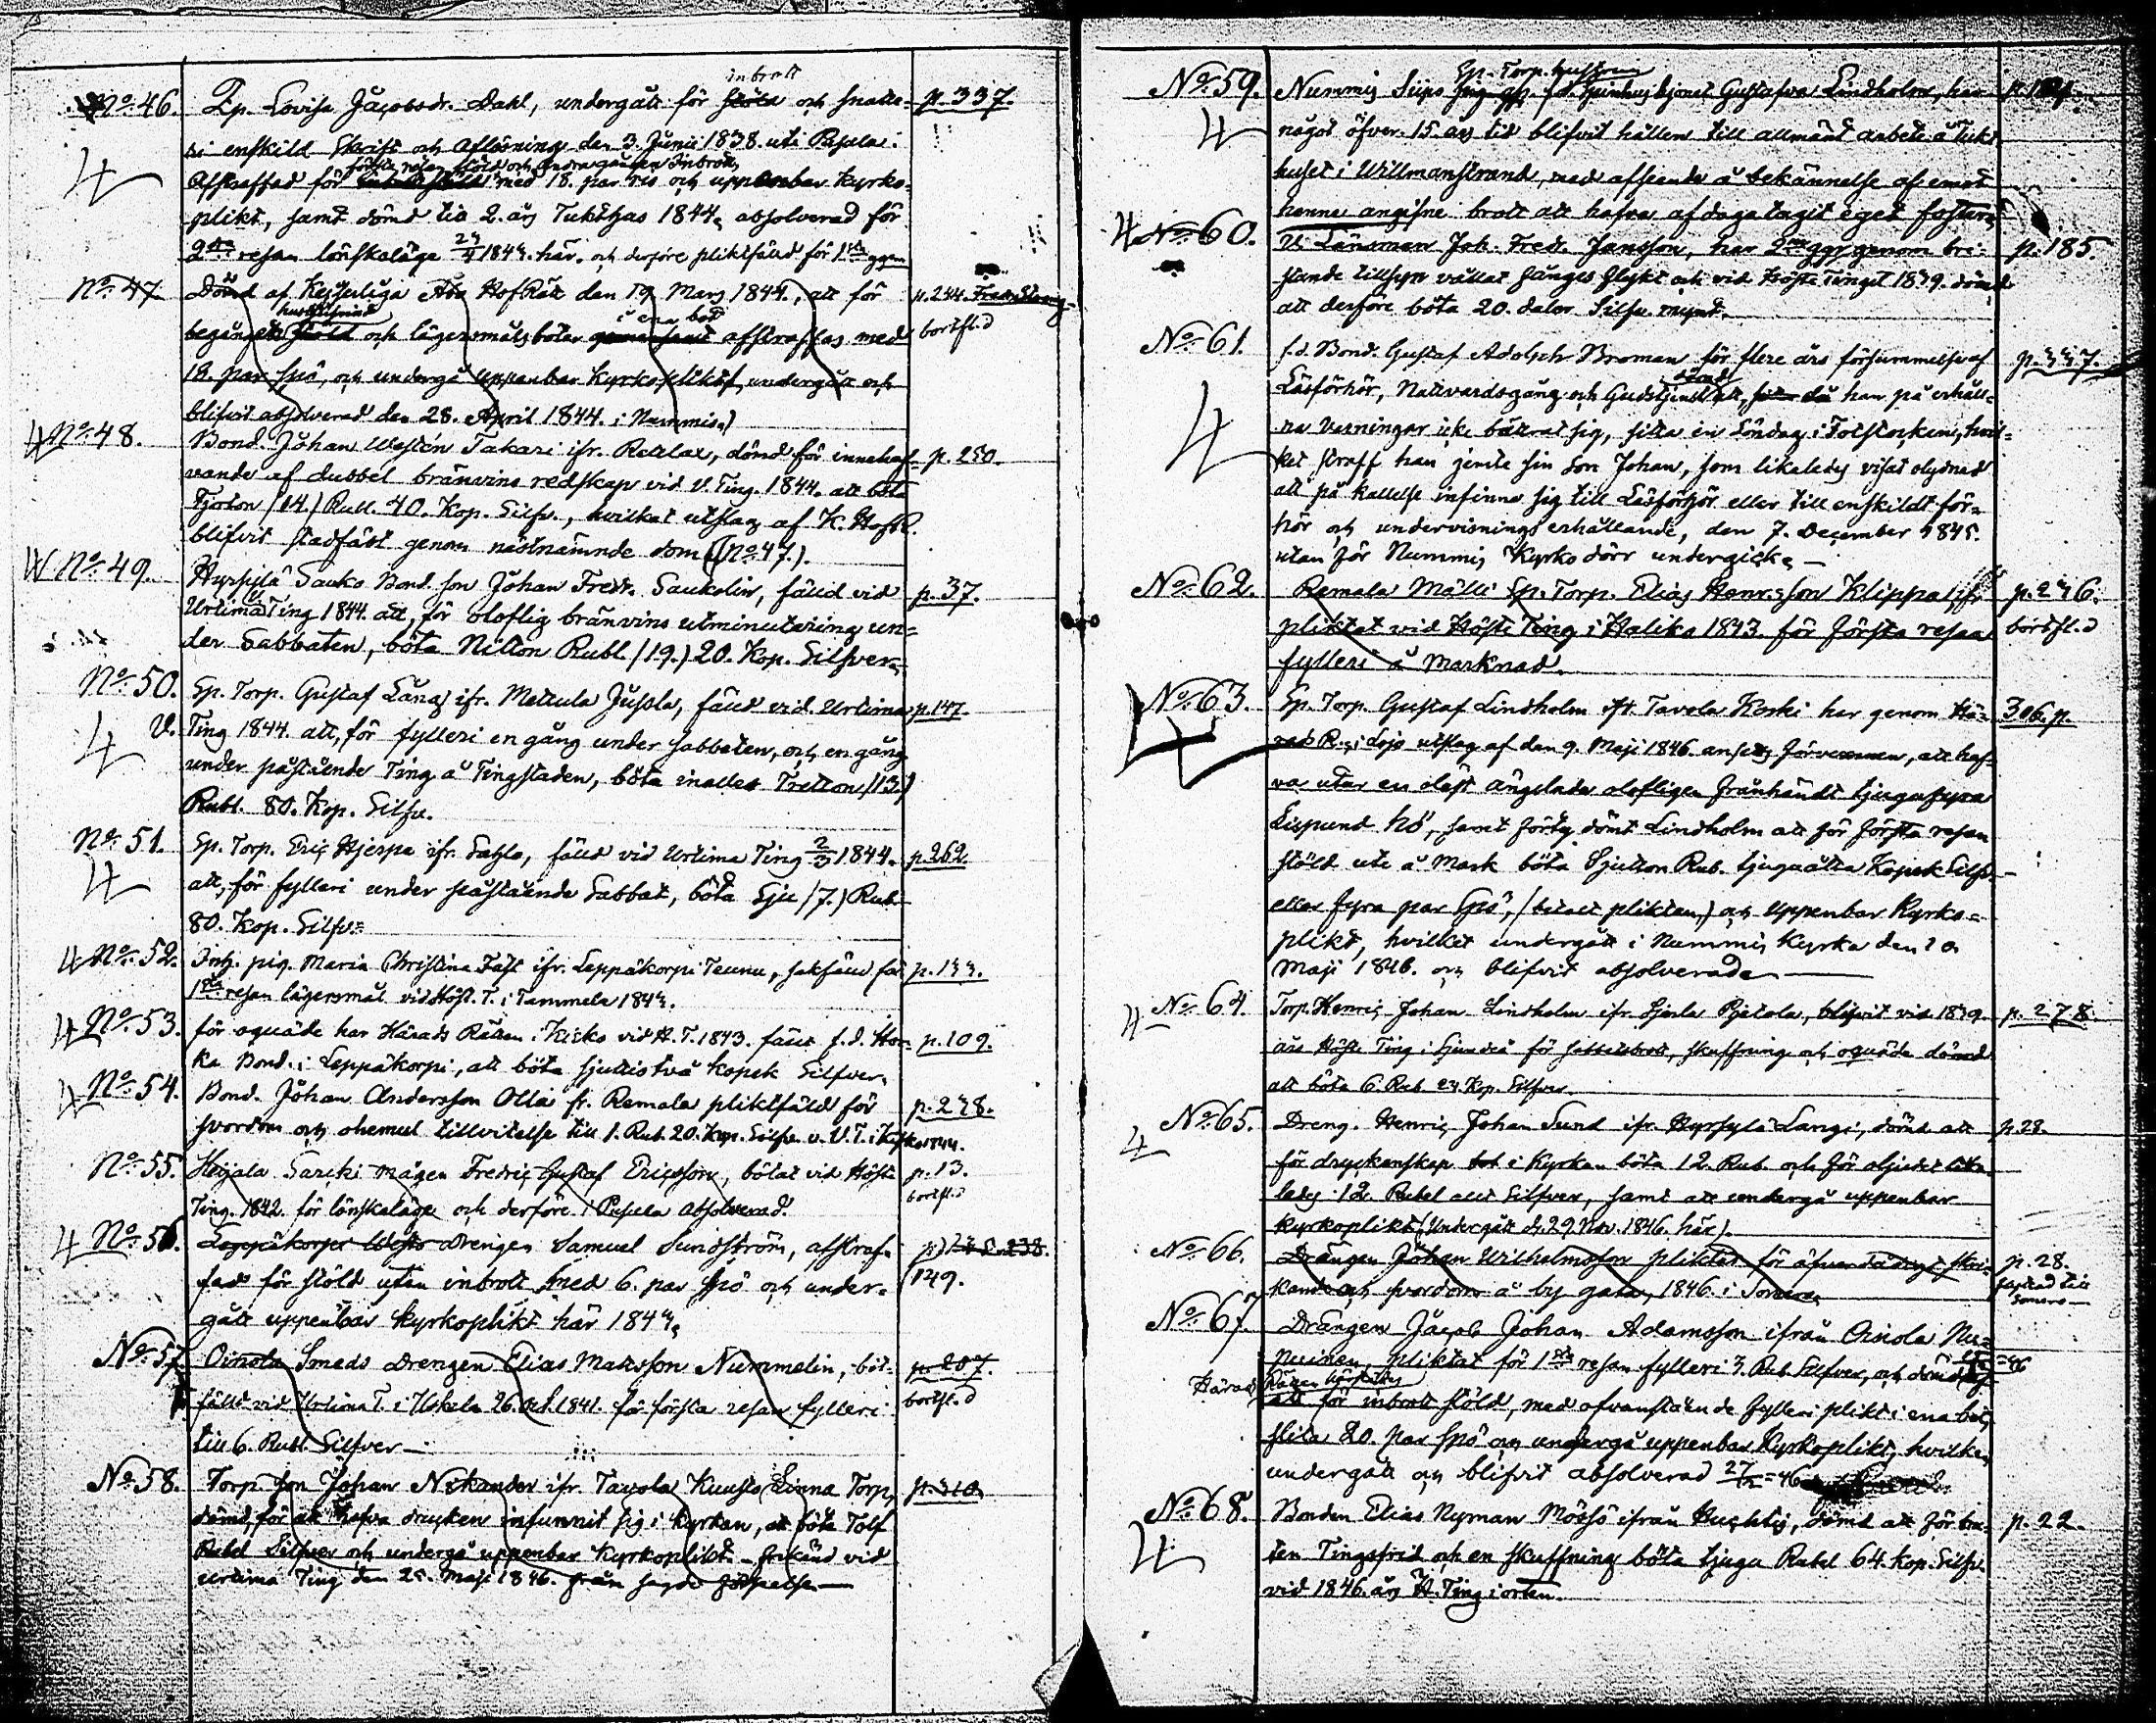 inbrott
No. 46. Qp. Lovisa Jacobsdr. Dahl, undergått för stöld och snatte- p. 337.
ri enskild Skrift och Aflösning den 3. Junii 1838. uti Pusula.
första resan stöld och andra gången Inbrott
Affstraffad för med 18. par ris och uppenbar kyrko-
plikt, samt dömd till 2. års Tukthus 1844, absolverad för
2dra resan lönskaläge 1844. här, och derföre pliktfälld för 1sta ggn
No. 47. Dömd af Kejserliga Åbo HofRätt den 19. Mars 1844., att för p. 244.
i ena bot
begånget och lägersmåls böter afstraffas med bortfl.d
18. par spö, och undergå uppenbar kyrkoplikt, undergått och
blifvit absolverad den 28. April 1844. i Nummis.
No. 48. Bond. Johan Westén Takari ifr. Retlax, dömd för innehaf- p. 250.
vande af dubbel bränvins redskap vid V. Ting. 1844. att böta
Fjorton (14) Rubl. 40. Kop. Silfv., hvilket utslag af K. HofR.
blifvit stadfäst genom nästnämnde dom (No. 47.).
No. 49. Hyrsylä Sauko Bond. son Johan Fredr. Saukolin, fälld vid p. 37.
Urtima Ting 1844. att, för oloflig bränvins utminutering un-
der Sabbaten, böta Nitton Rubl. (19.) 20. Kop. Silfver.
No. 50. Sp. Torp. Gustaf Lång ifr. Mettula Jussla, fälld vid Urtima p. 147.
V. Ting 1844. att, för fylleri en gång under sabbaten, och en gång
under påstående Ting å Tingstaden, böta inalles Tretton (13.)
Rubl. 80. Kop. Silfv.
No. 51. Sp. Torp. Eric Hjerpe ifr. Sahla, fälld vid Urtima Ting 2/3 1844. p. 262.
att, för fylleri under påstående Sabbat, böta Sju (7.) Rub.
80. Kop. Silfv.
No. 52. Inh. pig. Maria Christina Fält ifr. Leppäkorpi Teunu, sakfälld för p. 133.
1sta resan lägersmål vid Höst. T. i Tammela 1843.
No. 53. för oquäde har Härads Rätten i Kisko vid H. T. 1843. fällt f.d. p. 109.
Bond. i Leppäkorpi, att böta sjuttiotvå kopek Silfver.
No. 54. Bond. Johan Andersson Olli fr. Remala pliktfälld för p. 248.
svordom och ohemul tillvitelse till 1. Rub. 20. Kop. Silfv. v. V. T. i Kisko 1844.
No. 55. Heijala Sarcki mågen Fredric Gustaf Ericsson, bötat vid Höste p. 13.
Ting. 1842. för lönskaläge och derföre i Pusula Absolverad. bortfl.d
No. 56. Leppäkorpi drengen Samuel Sundström, afstraf- p. 238.
fad för stöld utan inbrott med 6. par spö och under- 149.
gått uppenbar kyrkoplikt här 1844.
No. 57. Oinola Smeds Drengen Elias Matsson Nummelin, böt- p. 207.
fälld vid Urtima T. i Uskela 26. Oct. 1841. för första resan fylleri bortfl.d
till 6. Rubl Silfver
No. 58. Torp. son Johan Niskander ifr. Tavola Kuusto Linna Torp, p. 310.
dömd, för att hafva drucken infunnit sig i kyrkan, att böta Tolf
Rubel Silfver och undergå uppenbar kyrkoplikt - frikänd vid
urtima Ting den 25. Maji 1846. från sagde
Sp. Torp. hustrun
No. 59. Nummis Siipo Gustafva Lindholm, har
något öfver 15. års tid blifvit hållen till allmänt arbete å Tukt-
huset i Willmanstrand, med afseende å bekännelse af emot
henne angifne brott att hafva af daga tagit eget foster.
No. 60. V. Länsman Joh. Fredr. Jansson, har 2ne ggr genom bri- p. 185.
stande tillsyn vållat fånges flykt och vid Höste Tinget 1839. dömd
att derföre böta 20. daler Silfv. mynt.
No. 61. f.d. Bond. Gustaf Adolph Broman för flere års försummelse af p. 337.
dömd
Läsförhör, Nattvardsgång och Gudstjenst att, då han på erhåll-
na varningar icke bättrat sig, sitta en Söndag i Fotstocken, hvil-
ket straff han jemte sin son Johan, som likaledes visat olydnad
att på kallelse infinna sig till Läsförhör eller till enskildt för-
hör och undervisnings erhållande, den 7. December 1845.
utan för Nummis Kyrko dörr undergick.
No. 62. Remala Mälli Sp. Torp. Elias Henricsson Klippa ifr. p. 246.
pliktat vid Höste Ting i Haliko 1843. för första resan bortfl.d
fylleri å Marknad.
No. 63. Sp. Torp. Gustaf Lindholm ifr. Tavola Koski har genom Hä- 306. p.
rads R. i Lojo utslag af den 9. Maji 1846. ansetts förvunnen, att haf-
va utur en oläst ängslada olofligen frånhändt tjugufyra
Lispund hö, samt förty dömt Lindholm att för första resan
stöld ute å Mark böta Sjutton Rub. tjuguåtta Kopek Silfv.
eller fyra par Spö, och uppenbar Kyrko-
plikt, hvilket undergått i Nummis Kyrka den 10.
Maji 1846. och blifvit absolverad
No. 64. Torp. Henric Johan Lindholm ifr. Sjerla Pjetola, blifvit vid 1839. p. 278.
års Höste Ting i Sjundeå för sabbatsbrott, skuffning och oquäde dömd
att böta 6. Rub. 24. Kop. Silfver.
No. 65. Dreng. Henric Johan Sund ifr. Hyrsylä Langi, dömd att p. 28.
för dryckenskap i Kyrkan böta 12. Rub. och för oljudet lika-
ledes 12. Rubel allt Silfver, samt att undergå uppenbar
kyrkoplikt (Undergått d. 29. Nov. 1846. här).
No. 66. Drängen Johan Wilhelmsson pliktat för p. 28.
och svordom å by gata, 1846. i Somero till Somero
No. 67. Drängen Jacob Johan Adamsson ifrån Oinola Nu-
puinen, pliktat för 1sta resan fylleri 3. Rub. Silfver, och dömd
Härads Rätten
att för inbrott stöld, med ofvanstående fylleri plikt i ena bot,
slita 20. par spö och undergå uppenbar Kyrkoplikt, hvilket
undergått och blifvit absolverad 27/12 46
No. 68. Bonden Elias Nyman Mössö ifrån Huchtis, dömd att för bru- p. 22.
ten Tingsfrid och en skuffning böta tjugu Rubel 64. Kop. Silfv.
vid 1846. års H. Ting i orten.